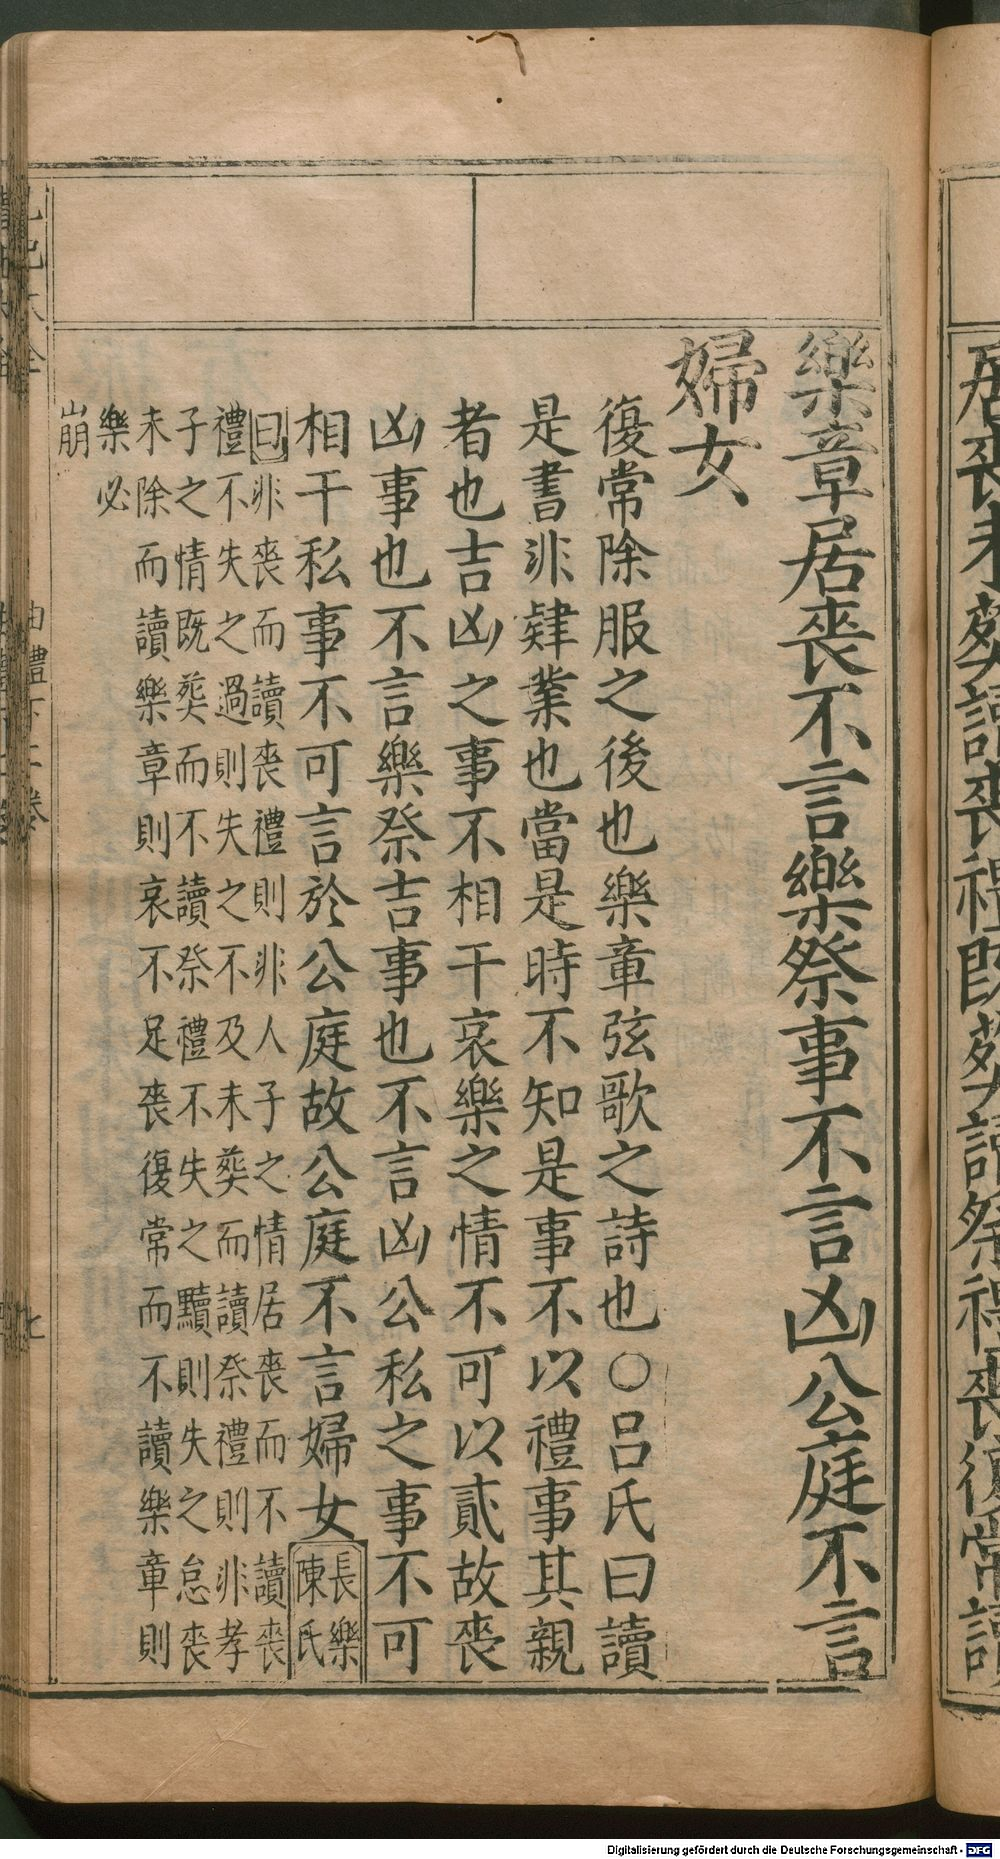 居喪未葬讀喪禮既葬讀祭禮喪復常讀
樂章居喪不言樂祭事不言凶公庭不言
婦女
復常除服之後也樂章弦歌之詩也○呂氏曰讀
是書非肄業也當是時不知是事不以禮事其親
者也吉凶之事不相干哀樂之情不可以貳故喪
凶事也不言樂祭吉事也不言凶公私之事不可
相干私事不可言於公庭故公庭不言婦女長樂陳氏
曰非喪而讀喪禮則非人子之情居喪而不讀喪
禮不失之過則失之不及未葬而讀祭禮則非孝
子之情既葬而不讀祭禮不失之黷則失之怠喪
未除而讀樂章則哀不足喪復常而不讀樂章則
樂必
崩
曲禮下二卷
七
Digitalisierung gefördert durch die Deutsche Forschungsgemeinschaft - DFG